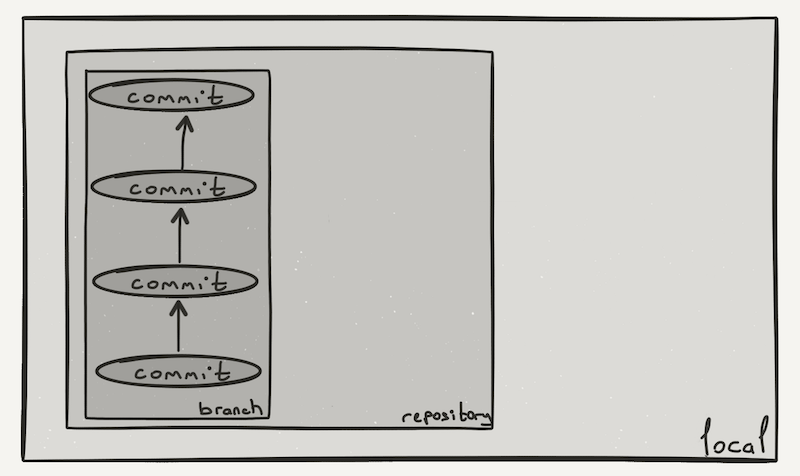 commit
commit
commit
commit
branch
repository
local